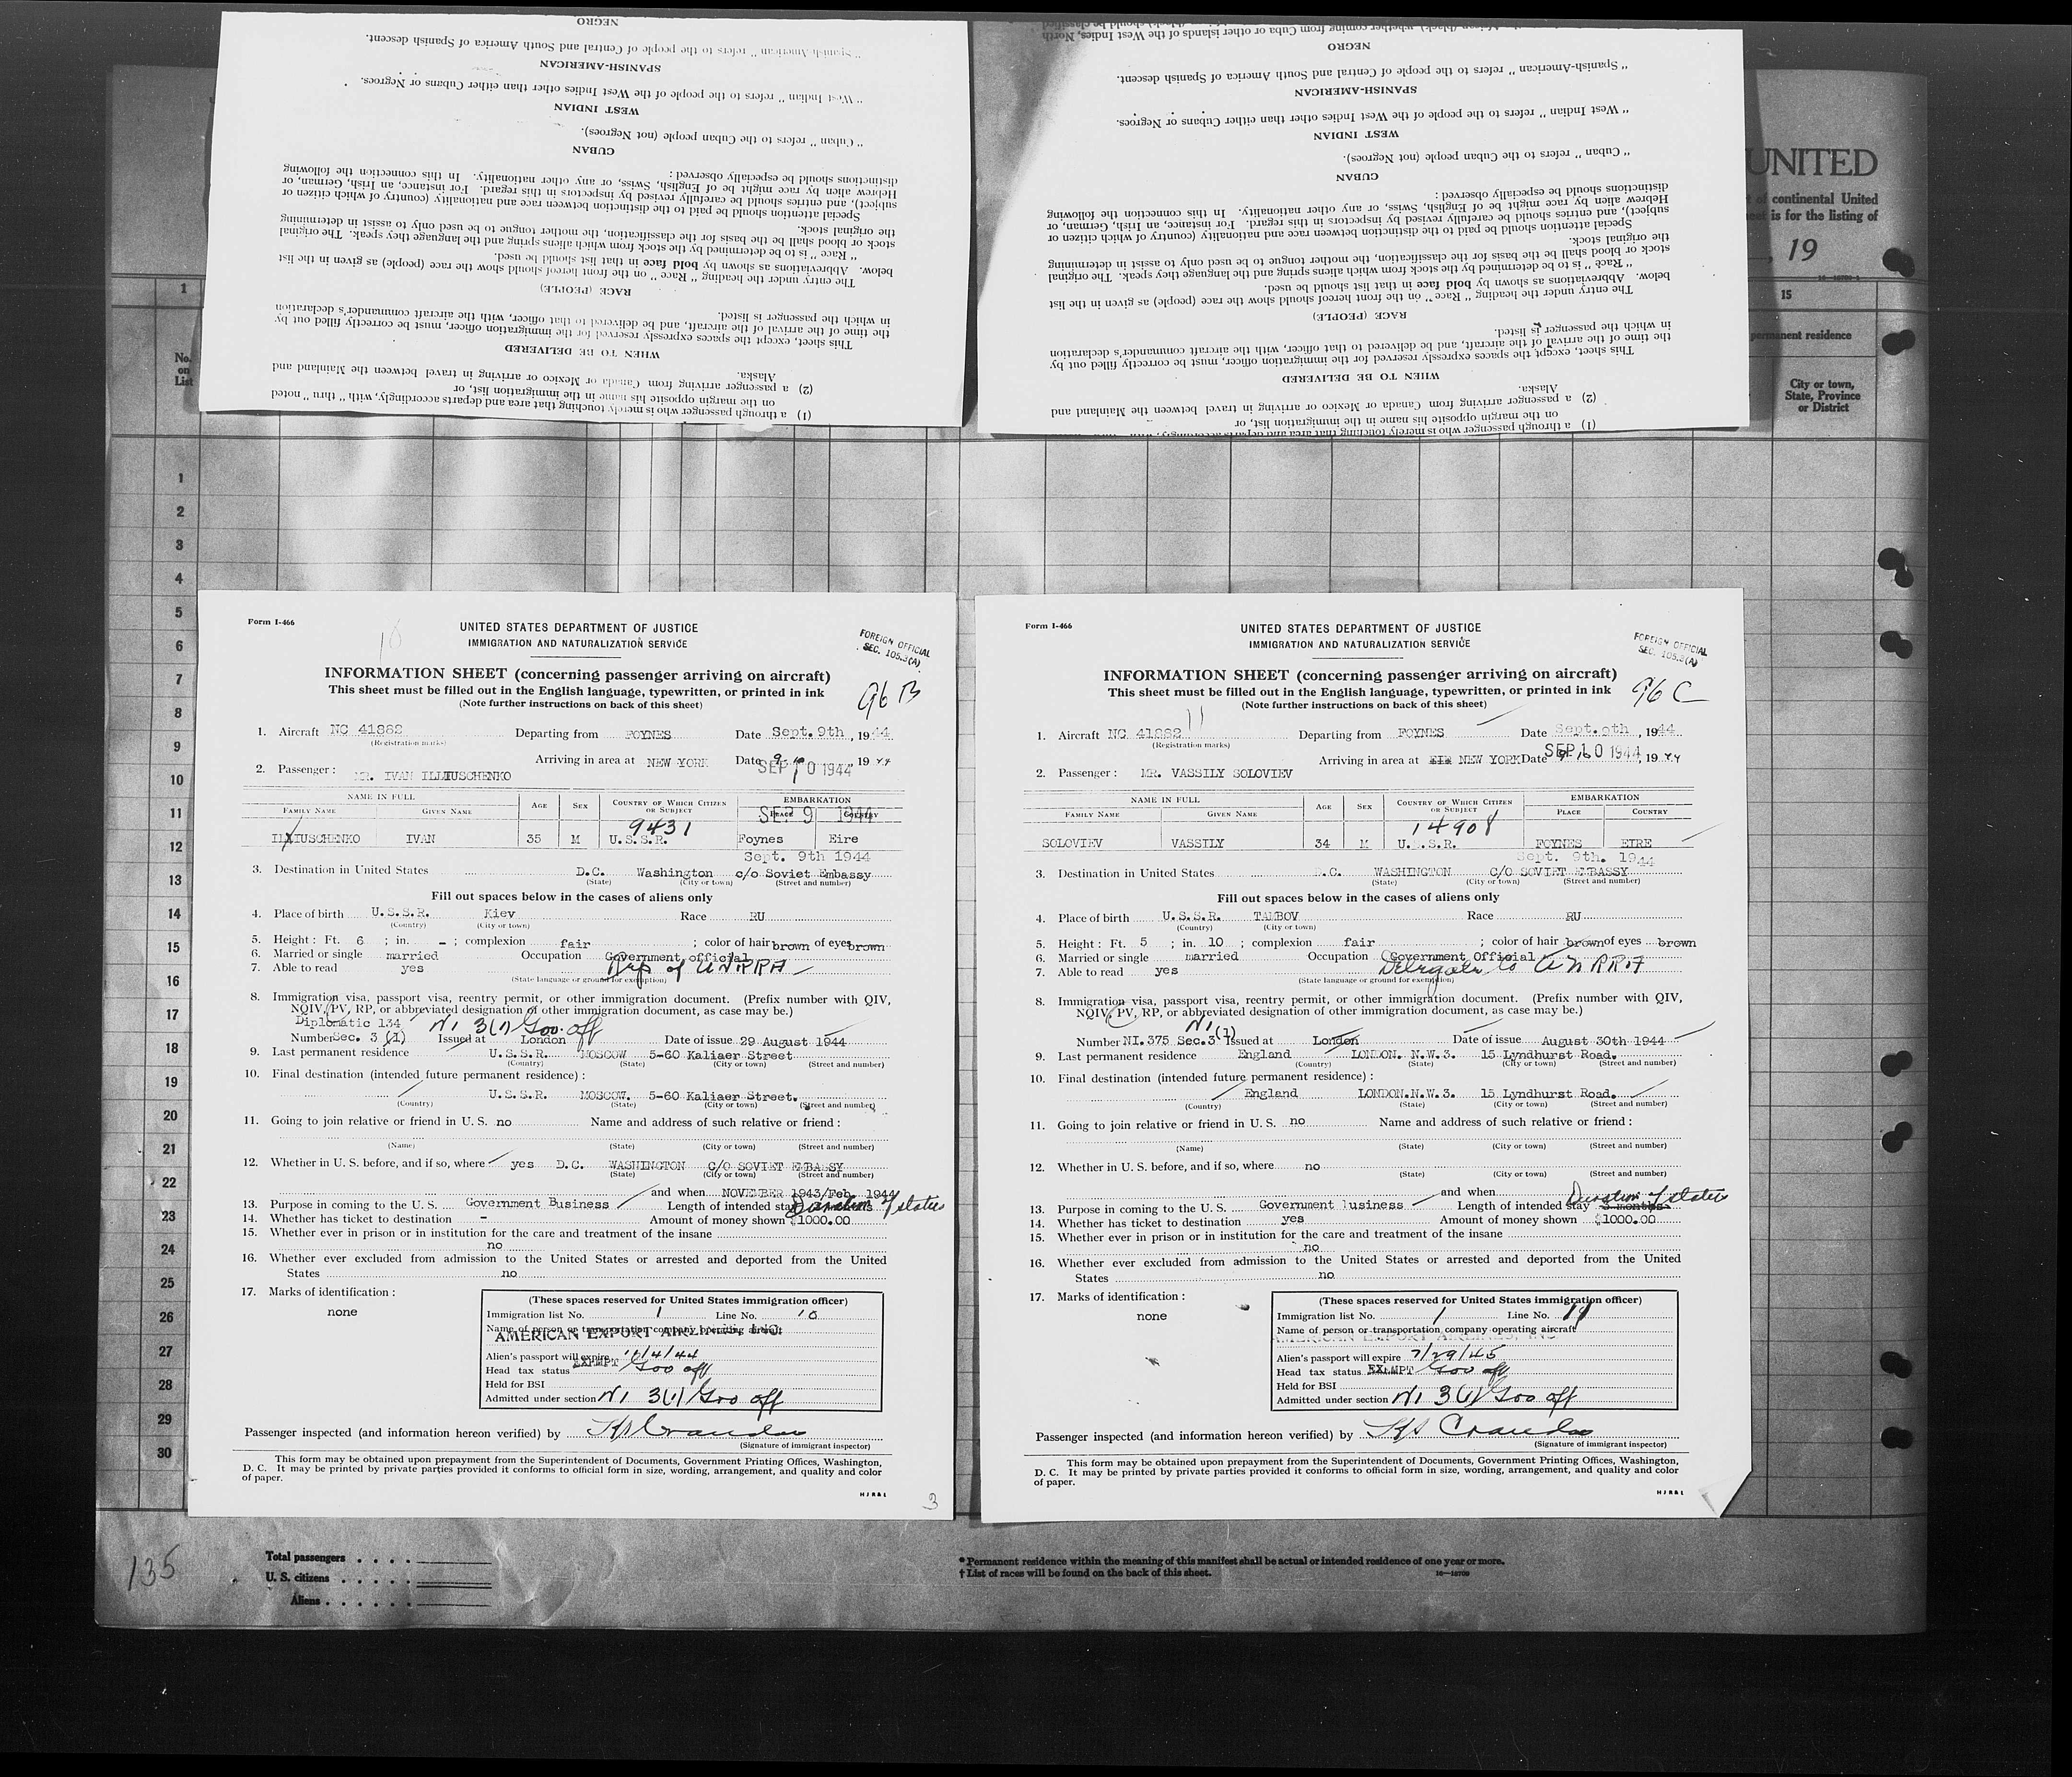 NEGRO
" Spanish-American " refers to the people of Central and South America of Spanish descent.
SPANISH-AMERICAN
" West Indian " refers to the people of the West Indies other than either Cubans or Negroes.
WEST INDIAN
" Cuban " refers to the Cuban people (not Negroes).
CUBAN
distinctions should be especially observed :
Hebrew alien by race might be of English, Swiss, or any other nationality. In this connection the following
subject), and entries should be carefully revised by inspectors in this regard. For instance, an Irish, German, or
Special attention should be paid to the distinction between race and nationality (country of which citizen or
the original stock.
stock or blood shall be the basis for the classification, the mother tongue to be used only to assist in determining
" Race " is to be determined by the stock from which aliens spring and the language they speak. The original
below. Abbreviations as shown by bold face in that list should be used.
The entry under the heading " Race " on the front hereof should show the race (people) as given in the list
RACE (PEOPLE)
in which the passenger is listed.
the time of the arrival of the aircraft, and be delivered to that officer, with the aircraft commander's declaration
This sheet, except the spaces expressly reserved for the immigration officer, must be correctly filled out by
WHEN TO BE DELIVERED
Alaska.
(2) a passenger arriving from Canada or Mexico or arriving in travel between the Mainland and
on the margin opposite his name in the immigration list, or
(1) a through passenger who is merely touching that area and departs accordingly, with " thru " noted
African (black), whether coming from Cuba or other islands of the West Indies, North
NEGRO
" Spanish-American " refers to the people of Central and South America of Spanish descent.
SPANISH-AMERICAN
" West Indian " refers to the people of the West Indies other than either Cubans or Negroes.
WEST INDIAN
" Cuban " refers to the Cuban people (not Negroes).
CUBAN
distinctions should be especially observed :
Hebrew alien by race might be of English, Swiss, or any other nationality. In this connection the following
subject), and entries should be carefully revised by inspectors in this regard. For instance, an Irish, German, or
Special attention should be paid to the distinction between race and nationality (country of which citizen or
the original stock.
stock or blood shall be the basis for the classification, the mother tongue to be used only to assist in determining
" Race " is to be determined by the stock from which aliens spring and the language they speak. The original
below. Abbreviations as shown by bold face in that list should be used.
The entry under the heading " Race " on the front hereof should show the race (people) as given in the list
RACE (PEOPLE)
in which the passenger is listed.
the time of the arrival of the aircraft, and be delivered to that officer, with the aircraft commander's declaration
This sheet, except the spaces expressly reserved for the immigration officer, must be correctly filled out by
WHEN TO BE DELIVERED
Alaska.
(2) a passenger arriving from Canada or Mexico or arriving in travel between the Mainland and
on the margin opposite his name in the immigration list, or
(1) a through passenger who is merely touching that area and departs accordingly, with
UNITED
of continental United
is for the listing of
, 19
16—18709-1
15
permanent residence
City or town,
State, Province
or District
1
No.
on
List
1
2
3
4
5
6
7
8
9
10
11
12
13
14
15
16
17
18
19
20
21
22
23
24
25
26
27
28
29
30
Form I-466
18
UNITED STATES DEPARTMENT OF JUSTICE
IMMIGRATION AND NATURALIZATION SERVICE
FOREIGN OFFICIAL
SEC. 105.3(A)
INFORMATION SHEET (concerning passenger arriving on aircraft)
This sheet must be filled out in the English language, typewritten, or printed in ink
(Note further instructions on back of this sheet)
96 B
1. Aircraft NC 41882 Departing from FOYNES Date Sept. 9th, 1944
(Registration marks)
Arriving in area at NEW YORK Date SEP 10 1944, 19 44
2. Passenger : MR. IVAN ILLIUSCHENKO
NAME IN FULL AGE SEX COUNTRY OF WHICH CITIZEN OR SUBJECT EMBARKATION
FAMILY NAME GIVEN NAME PLACE COUNTRY
SEP 9 1944
9431
ILIUSCHENKO IVAN 35 M U.S.S.R. Foynes Eire
Sept. 9th 1944
3. Destination in United States D.C. Washington c/o Soviet Embassy
(State) (City or town) (Street and number)
Fill out spaces below in the cases of aliens only
4. Place of birth U.S.S.R. Kiev Race RU
(Country) (City or town)
5. Height : Ft. 6 ; in. - ; complexion fair ; color of hair brown of eyes brown
6. Married or single married Occupation Government official
7. Able to read yes Rep of UNRRA
(State language or ground for exemption)
8. Immigration visa, passport visa, reentry permit, or other immigration document. (Prefix number with QIV,
NQIV, PV, RP, or abbreviated designation of other immigration document, as case may be.)
Diplomatic 134 NI 3(1) Gov. off
Number Sec. 3 (1) Issued at London Date of issue 29 August 1944
9. Last permanent residence U.S.S.R. MOSCOW 5-60 Kaliaer Street
(Country) (State) (City or town) (Street and number)
10. Final destination (intended future permanent residence) :
U.S.S.R. MOSCOW. 5-60 Kaliaer Street.
(Country) (State) (City or town) (Street and number)
11. Going to join relative or friend in U. S. no Name and address of such relative or friend :
(Name) (State) (City or town) (Street and number)
12. Whether in U. S. before, and if so, where yes D.C. WASHINGTON C/O SOVIET EMBASSY
(State) (City or town) (Street and number)
and when NOVEMBER 1943/Feb. 1944
13. Purpose in coming to the U. S. Government Business Length of intended stay Duration of status
14. Whether has ticket to destination - Amount of money shown $1000.00
15. Whether ever in prison or in institution for the care and treatment of the insane
no
16. Whether ever excluded from admission to the United States or arrested and deported from the United
States no
17. Marks of identification :
none
(These spaces reserved for United States immigration officer)
Immigration list No. 1 Line No. 10
Name of person or transportation company operating aircraft
AMERICAN EXPORT AIRLINES, INC.
Alien's passport will expire 11/4/44
Head tax status EXEMPT Gov off
Held for BSI
Admitted under section NI 3(1) Gov off
Passenger inspected (and information hereon verified) by
(Signature of immigrant inspector)
This form may be obtained upon prepayment from the Superintendent of Documents, Government Printing Offices, Washington,
D. C. It may be printed by private parties provided it conforms to official form in size, wording, arrangement, and quality and color
of paper.
H J R & L
3
Form I-466
UNITED STATES DEPARTMENT OF JUSTICE
IMMIGRATION AND NATURALIZATION SERVICE
FOREIGN OFFICIAL
SEC. 105.3(A)
INFORMATION SHEET (concerning passenger arriving on aircraft)
This sheet must be filled out in the English language, typewritten, or printed in ink
(Note further instructions on back of this sheet)
96 C
11
1. Aircraft NC 41882 Departing from FOYNES Date Sept. 9th, 1944
(Registration marks)
Arriving in area at NEW YORK Date SEP 10 1944, 19 44
2. Passenger : MR. VASSILY SOLOVIEV
NAME IN FULL AGE SEX COUNTRY OF WHICH CITIZEN OR SUBJECT EMBARKATION
FAMILY NAME GIVEN NAME PLACE COUNTRY
14908
SOLOVIEV VASSILY 34 M U.S.S.R. FOYNES EIRE
Sept. 9th. 1944
3. Destination in United States D.C. WASHINGTON C/O SOVIET EMBASSY
(State) (City or town) (Street and number)
Fill out spaces below in the cases of aliens only
4. Place of birth U.S.S.R. TAMBOV Race RU
(Country) (City or town)
5. Height : Ft. 5 ; in. 10 ; complexion fair ; color of hair brown of eyes brown
6. Married or single married Occupation Government Official
7. Able to read yes Delegate to UNRRA
(State language or ground for exemption)
8. Immigration visa, passport visa, reentry permit, or other immigration document. (Prefix number with QIV,
NQIV, PV, RP, or abbreviated designation of other immigration document, as case may be.)
NI
Number NI.375 Sec.3 (1) Issued at London Date of issue August 30th 1944
9. Last permanent residence England LONDON. N.W.3. 15 Lyndhurst Road.
(Country) (State) (City or town) (Street and number)
10. Final destination (intended future permanent residence) :
England LONDON.N.W.3. 15 Lyndhurst Road.
(Country) (State) (City or town) (Street and number)
11. Going to join relative or friend in U. S. no Name and address of such relative or friend :
(Name) (State) (City or town) (Street and number)
12. Whether in U. S. before, and if so, where no
(State) (City or town) (Street and number)
and when
Duration of status
13. Purpose in coming to the U. S. Government business Length of intended stay 3 months
14. Whether has ticket to destination yes Amount of money shown $1000.00
15. Whether ever in prison or in institution for the care and treatment of the insane
no
16. Whether ever excluded from admission to the United States or arrested and deported from the United
States no
17. Marks of identification :
none
(These spaces reserved for United States immigration officer)
Immigration list No. 1 Line No. 11
Name of person or transportation company operating aircraft
AMERICAN EXPORT AIRLINES, INC.
Alien's passport will expire 7/29/45
Head tax status EXEMPT Gov off
Held for BSI
Admitted under section NI 3(1) Gov off
Passenger inspected (and information hereon verified) by
(Signature of immigrant inspector)
This form may be obtained upon prepayment from the Superintendent of Documents, Government Printing Offices, Washington,
D. C. It may be printed by private parties provided it conforms to official form in size, wording, arrangement, and quality and color
of paper.
H J R & L
135
Total passengers . . . .
U. S. citizens . . . . .
Aliens . . . . . .
* Permanent residence within the meaning of this manifest shall be actual or intended residence of one year or more.
† List of races will be found on the back of this sheet.
16—18709